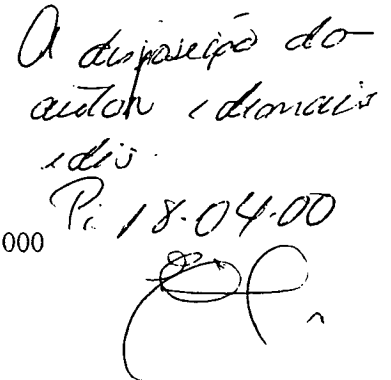 A disposição do
autor e demais
edis.
Pi. 18.04.00
000